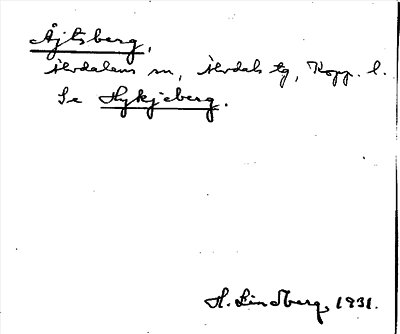 Åjtsberg,
Älvdalens sn, Älvdals tg, Kopp. l.
Se Hykjeberg.
H. Lindberg, 1931.